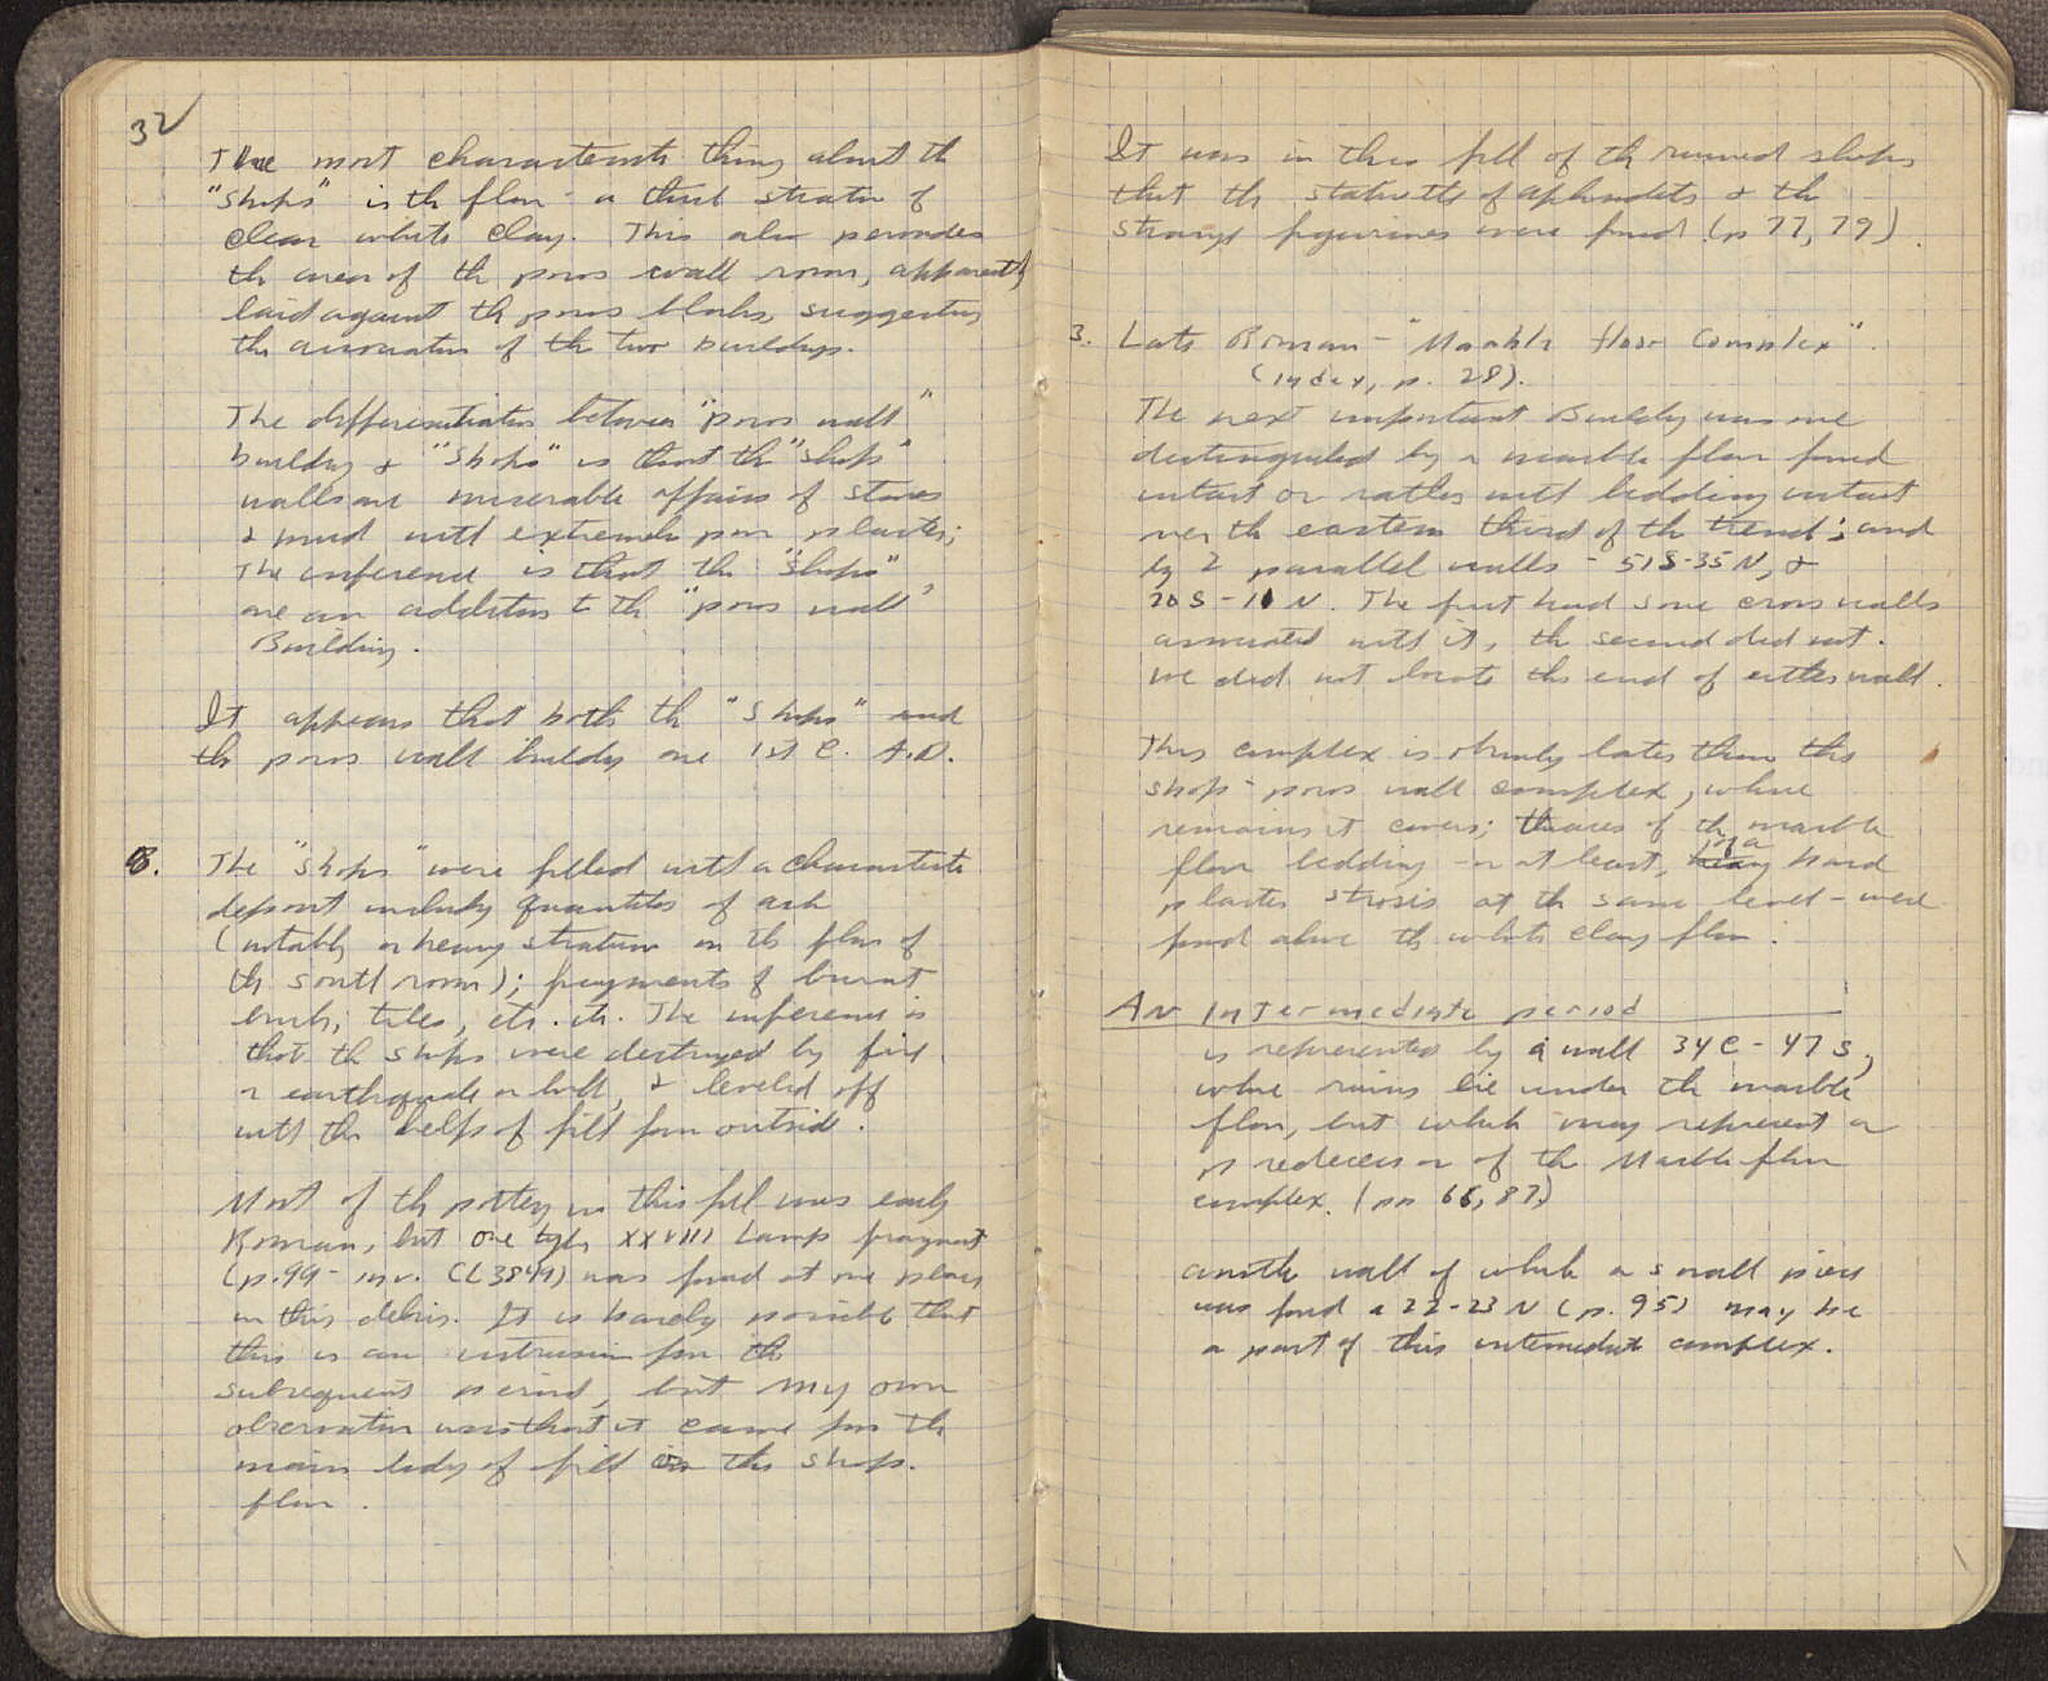 32
The most characteristic thing about the
"shops" is the floor - a thick stratum of
clean white clay. This also pervades
the area of the poros wall room, apparently
laid against the poros blocks, suggesting
the association of the two buildings.
The differentiation between "poros wall"
building & "shops" is that the "shops"
walls are miserable affairs of stones
& mud with extremely poor plaster;
The inference is that the "shops"
are an addition to the "poros wall"
Building.
It appears that both the "Shops" and
the poros wall building are 1st C. A.D.
B. The "shops" were filled with a characteristic
deposit including quantities of ash
(notably a heavy stratum on the floor of
the south room); fragments of burnt
brick, tiles, etc. etc. The inference is
that the shops were destroyed by fire
or earthquake or both, & leveled off
with the help of fill from outside.
Most of the pottery in this fill was early
Roman, but one type XXVIII Lamp fragment
(p. 99 - inv. CL 3849) was found at one place
in this debris. It is barely possible that
this is an intrusion from the
subsequent period, but my own
observation was that it came from the
main body of fill in the shops.
floor.
It was in this fill of the ruined shops
that the statuette of aphrodite & the
strange figurines were found (p 77, 79).
3. Late Roman - "Marble floor Complex".
(index, p. 28).
The next important Building was one
distinguished by a marble floor found
intact or rather with bedding intact
over the eastern third of the trench; and
by 2 parallel walls - 51S-35N, &
20S-11N. The first had some cross walls
associated with it, the second did not.
We did not locate the end of either wall.
This complex is obviously later than the
shop - poros wall complex, whose
remains it covers; traces of the marble
floor bedding - or at least, of a hard
plaster strosis at the same level - were
found above the white clay floor.
An Intermediate period
is represented by a wall 34C-47S,
whose ruins lie under the marble
floor, but which may represent a
predecessor of the Marble floor
complex. (pp 65, 87)
another wall of which a small piece
was found a 22-23 N (p. 95) may be
a part of this intermediate complex.